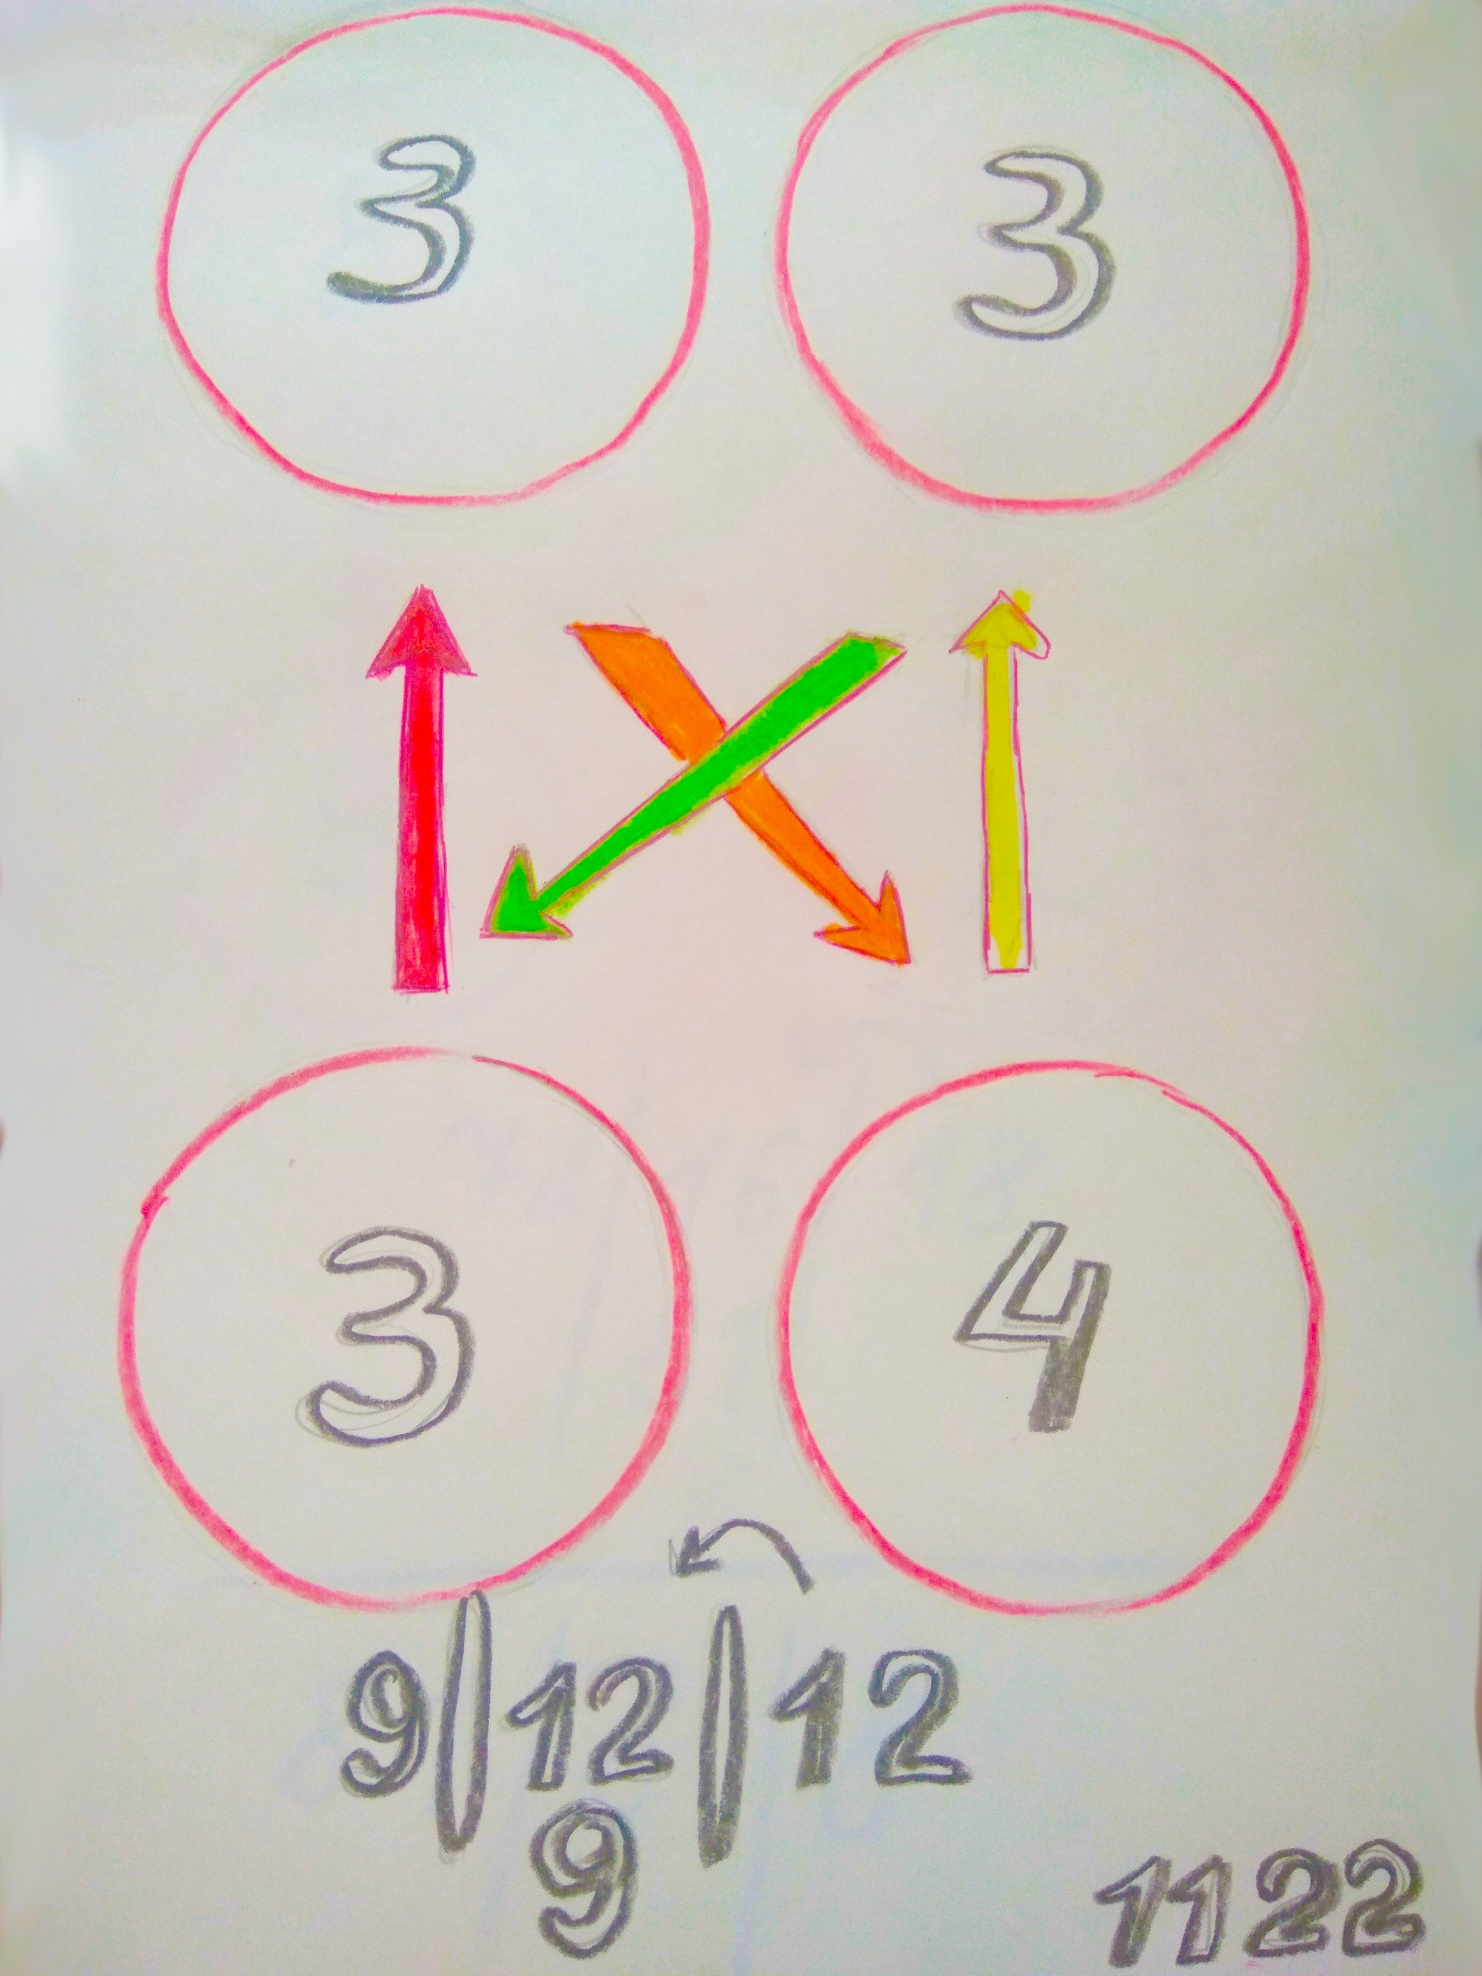 3 3
3 4
9|12|12
9
1122